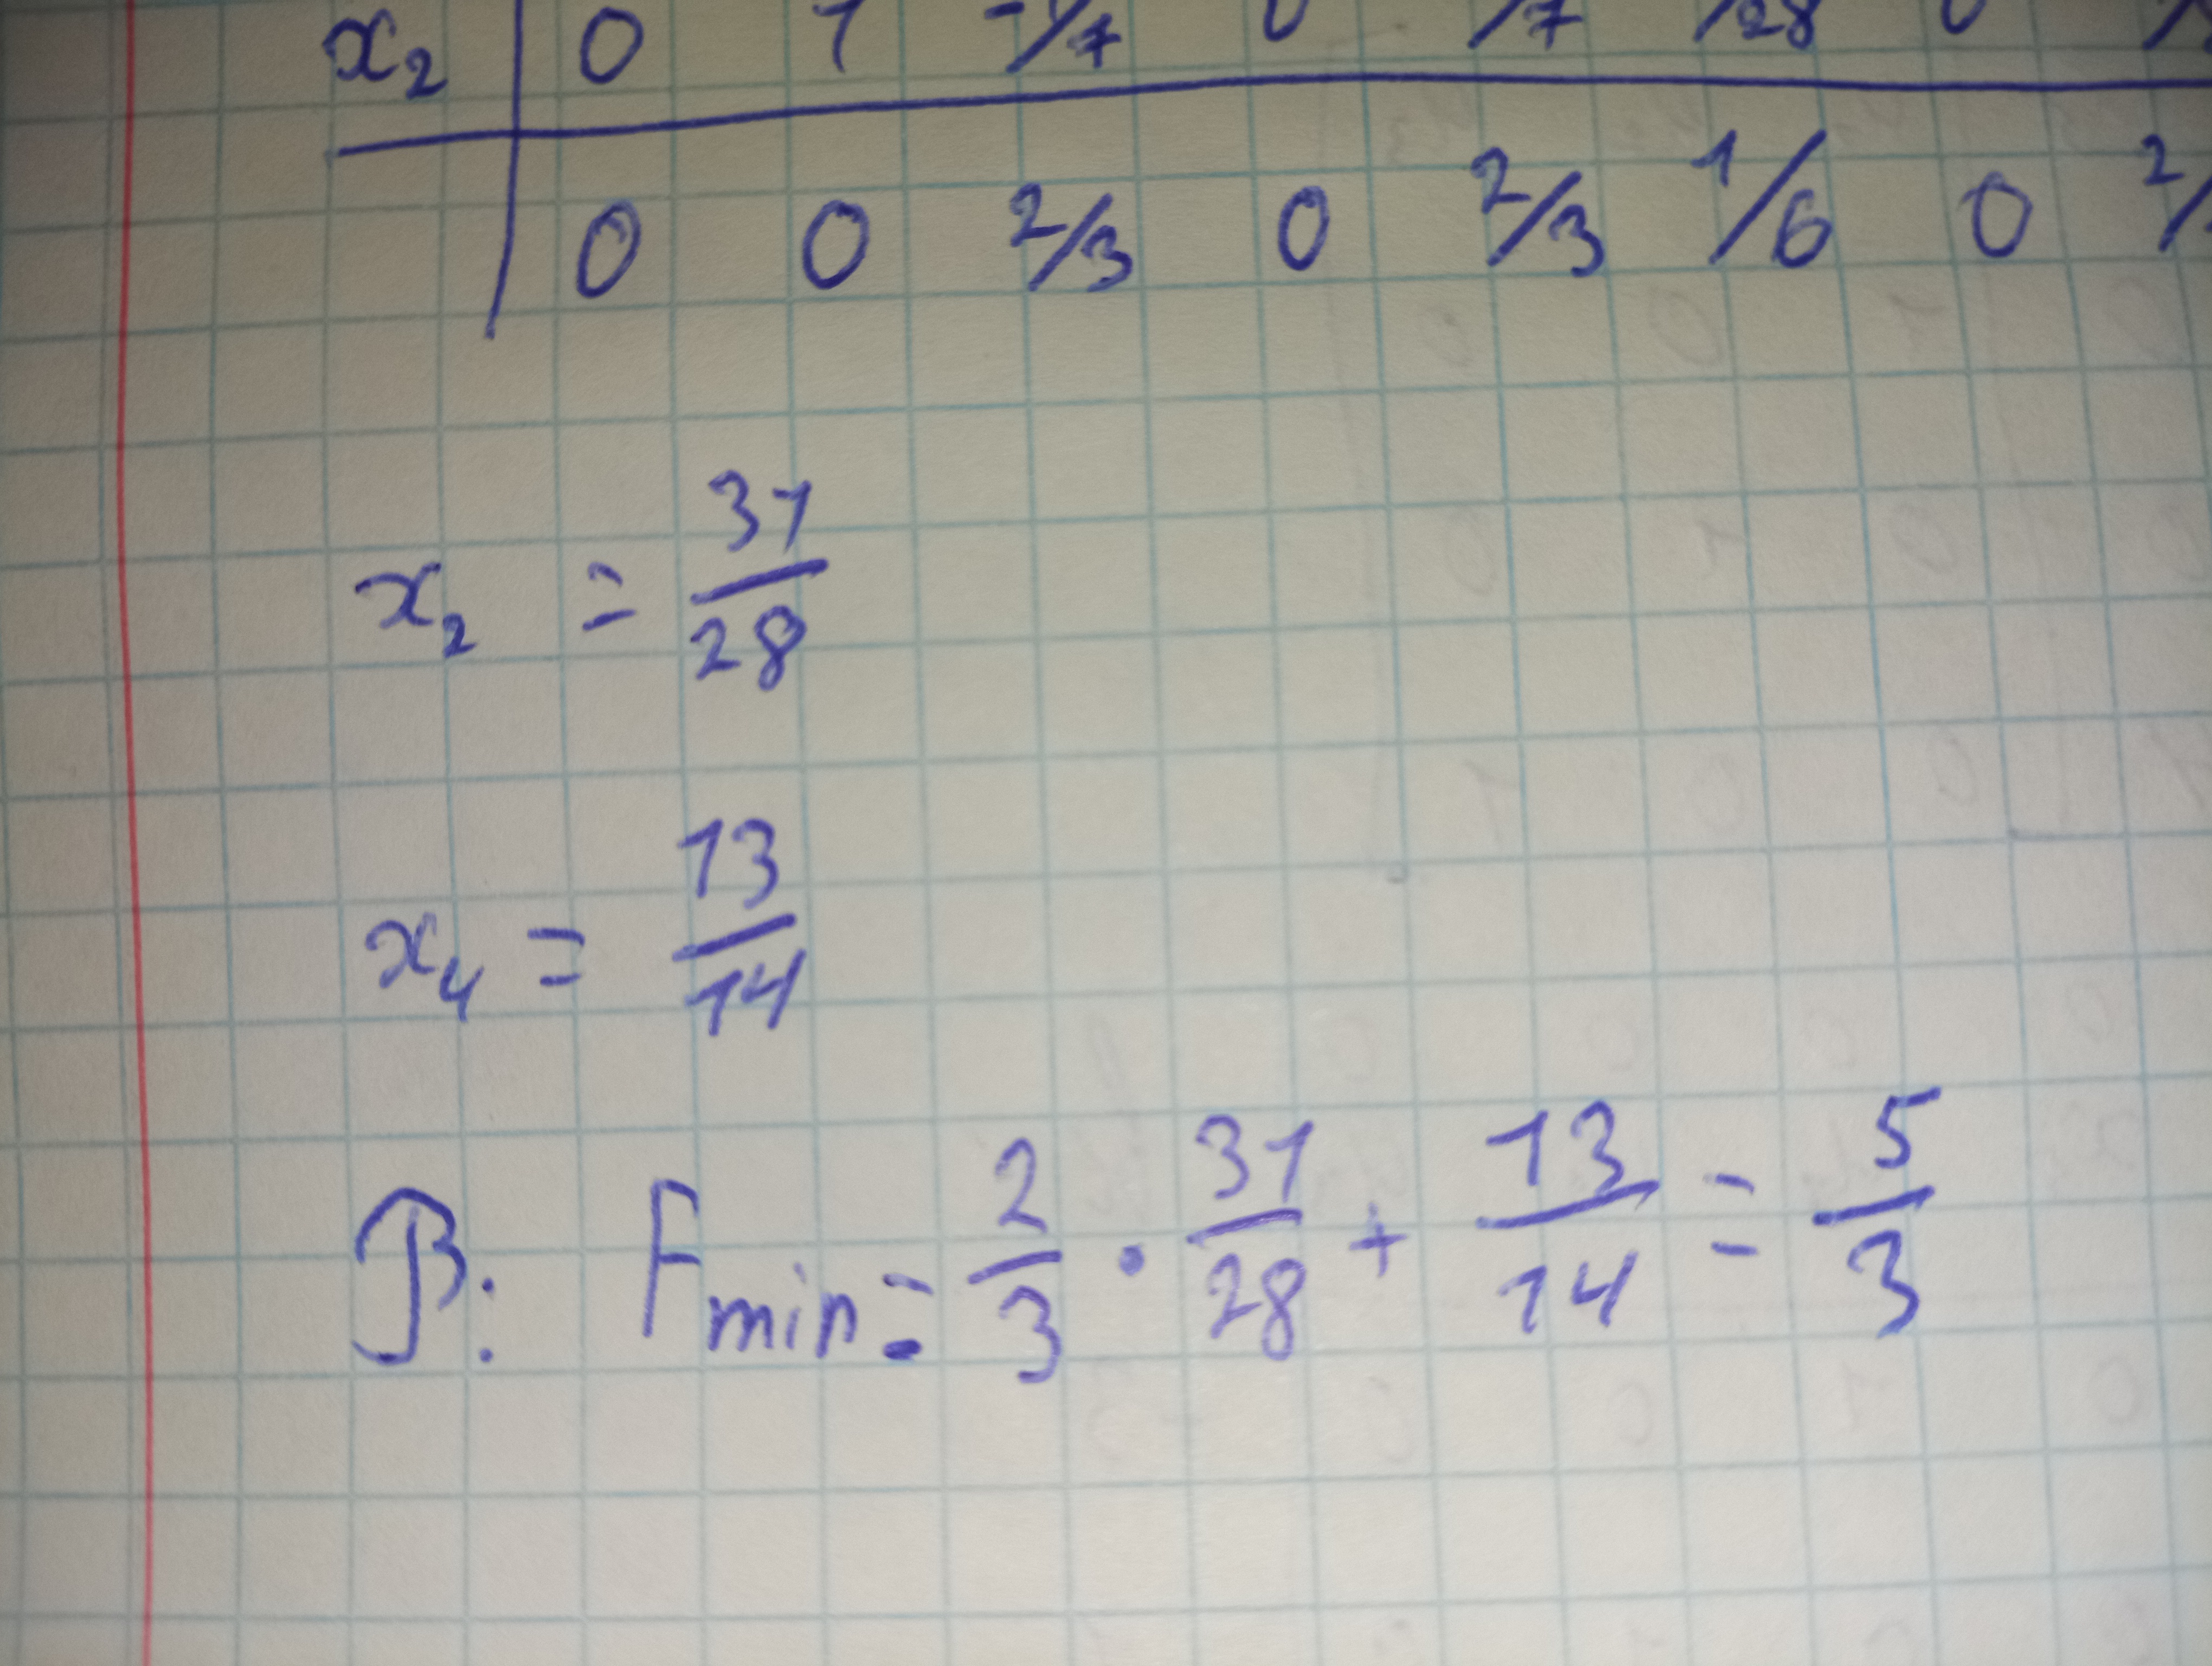 x₂ 0 1 -1/7 0 /7 /28 0
0 0 2/3 0 2/3 1/6 0 2/
x₂ = 31/28
x₄ = 13/14
В: Fmin = 2/3 · 31/28 + 13/14 = 5/3